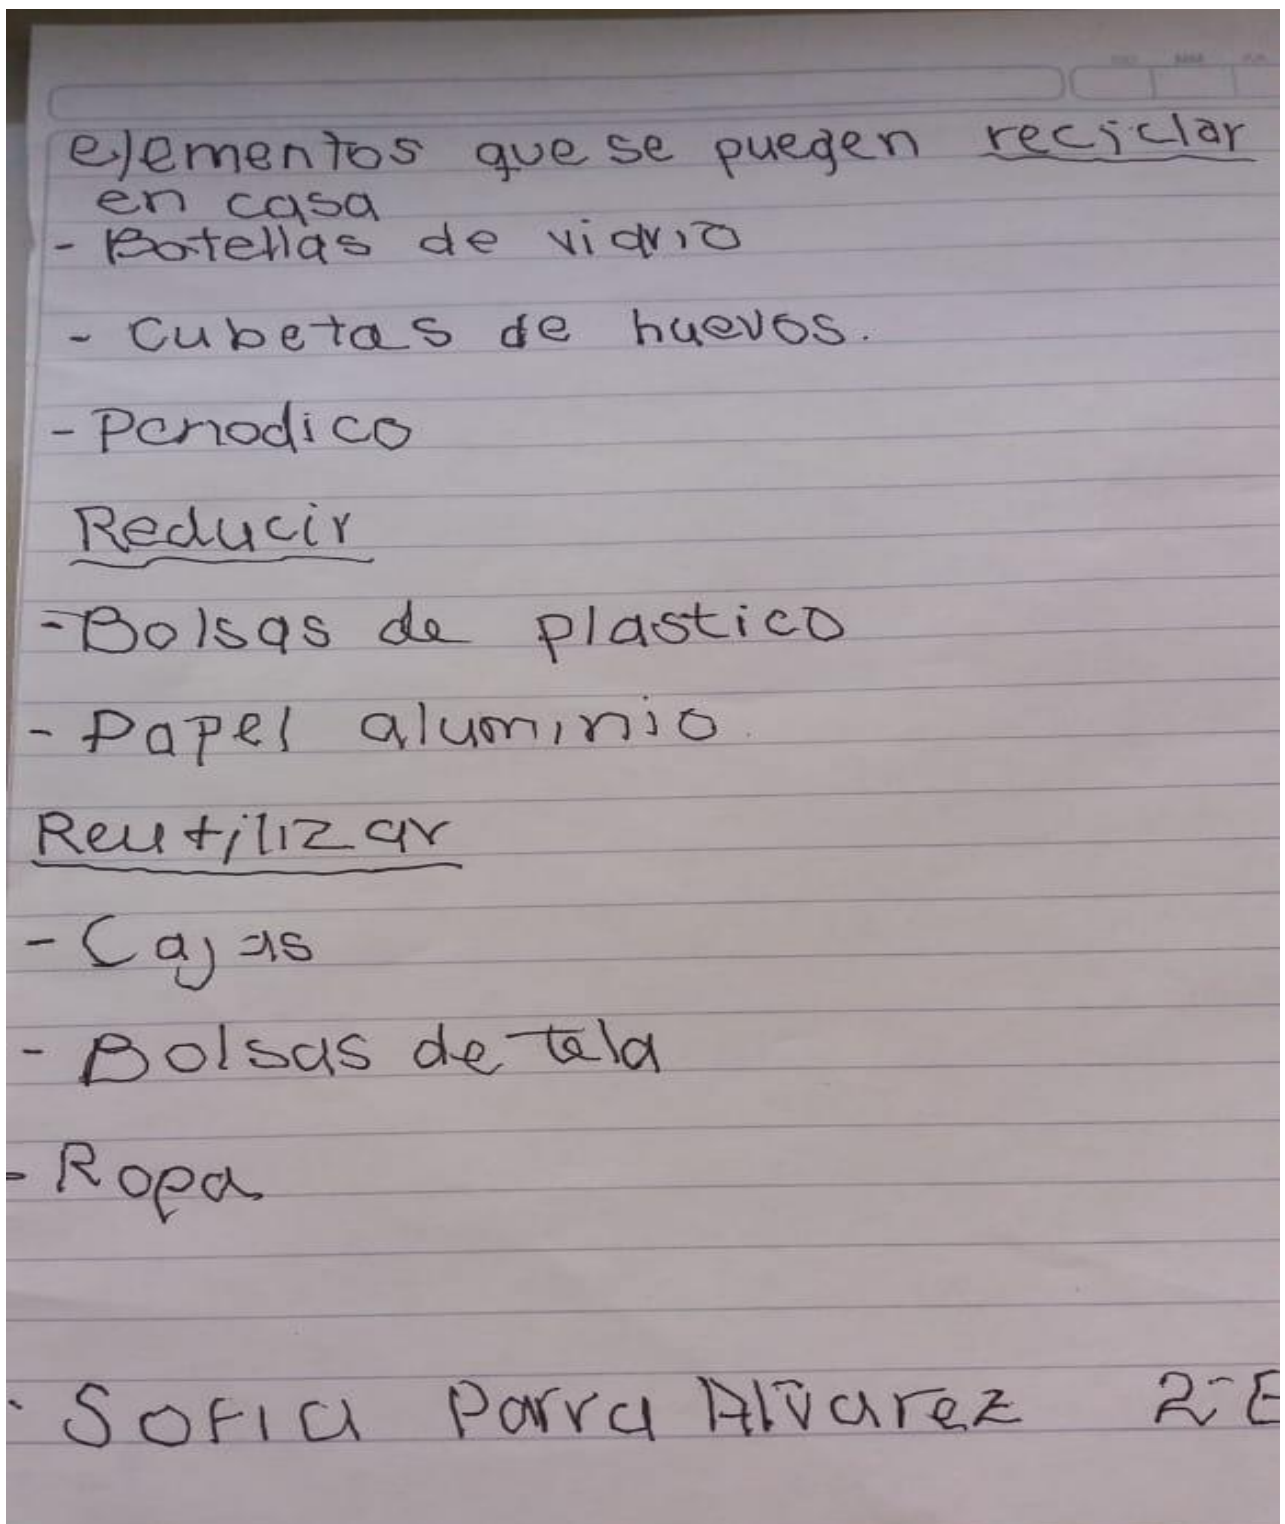 elementos que se puegen reciclar
en casa
- Botellas de vidrio
- Cubetas de huevos.
- Periodico
Reducir
- Bolsas de plastico
- Papel aluminio.
Reutilizar
- Cajas
- Bolsas de tela
- Ropa
Sofia Parra Alvarez 2-E